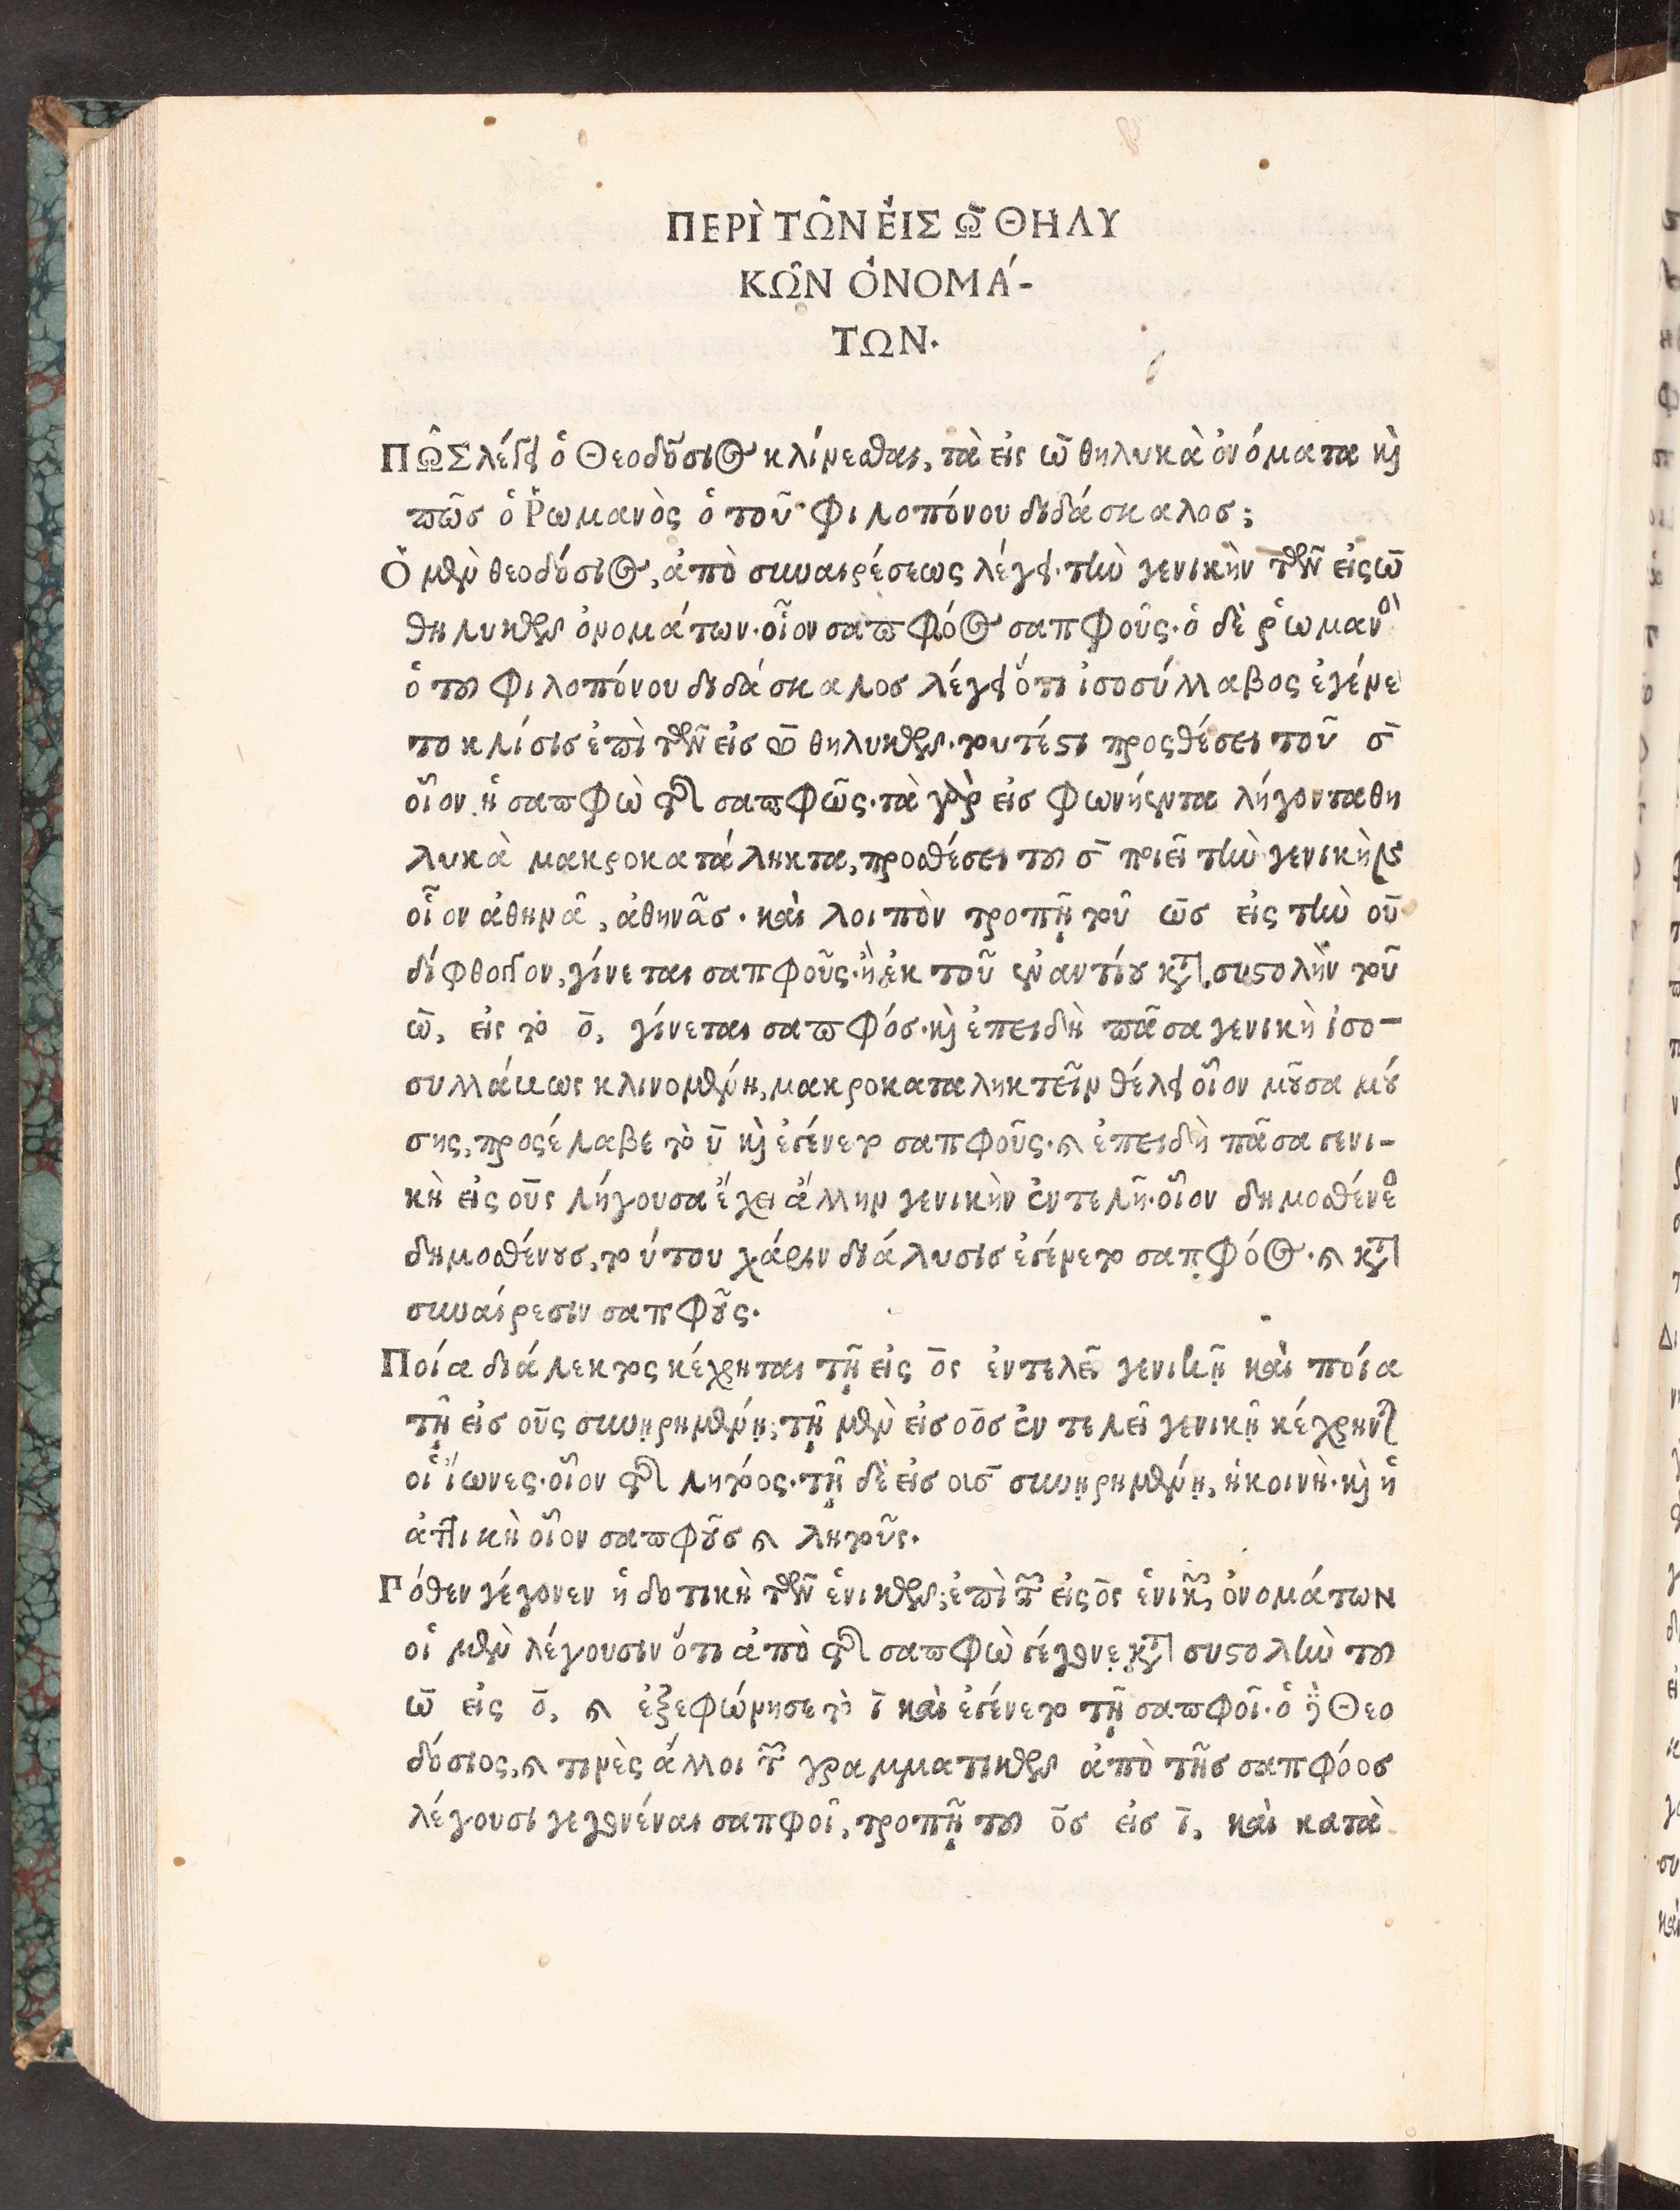 ΠΕΡῚ ΤΩ͂Ν ἘΙΣ Ω͂ ΘΗΛΥ
ΚΩ͂Ν ὈΝΟΜΆ-
ΤΩΝ.
ΠΩ͂Σ λέγει ὁ Θεοδόσιος κλίνεσθαι, τὰ εἰς ω̄ θηλυκὰ ὀνόματα καὶ
πῶσ ὁ Ῥωμανὸς ὁ τοῦ Φιλοπόνου διδάσκαλοσ;
Ὁ μὲν θεοδόσιος, ἀπὸ συναιρέσεως λέγει· τὴν γενικὴν τῶν εἰς ω̄
θηλυκῶν ὀνομάτων· οἷον σαπφόος σαπφοῦς· ὁ δὲ ῥωμανὸς
ὁ του Φιλοπόνου διδάσκαλοσ λέγει ὅτι ἰσοσύλλαβος ἐγένε
το κλίσισ ἐπὶ τῶν εἰσ ω̄ θηλυκῶν· τουτέστι προσθέσει τοῦ σ̄
οἷον ἡ σαπφὼ τῆς σαπφῶς· τὰ γὰρ εἰσ φωνήεντα λήγοντα θη
λυκὰ μακροκατάληκτα, προσθέσει του σ̄ ποιεῖ τὴν γενικὴν
οἷον ἀθηνᾶ, ἀθηνᾶσ· καὶ λοιπὸν τροπῇ τοῦ ω̄σ εἰς τὴν οῡ
δίφθογγον, γίνεται σαπφοῦς· ἢ ἐκ τοῦ ἐναντίου κατὰ συστολὴν τοῦ
ω̄, εἰς τὸ ο̄, γίνεται σαπφόσ· καὶ ἐπειδὴ πᾶσα γενικὴ ἰσο-
συλλάβως κλινομένη, μακροκαταληκτεῖν θέλει οἷον μοῦσα μού
σης, προσέλαβε τὸ ῡ καὶ ἐγένετο σαπφοῦς· καὶ ἐπειδὴ πᾶσα γενι-
κὴ εἰς οῦς λήγουσα ἔχει ἄλλην γενικὴν ἐντελῆ· οἷον δημοσθένεος
δημοσθένουσ, τούτου χάριν διάλυσισ ἐγένετο σαπφόος· καὶ κατὰ
συναίρεσιν σαπφοῦς.
Ποία διάλεκτος κέχρηται τῇ εἰς ο̄ς ἐντελεῖ γενικῇ καὶ ποία
τῇ εἰσ οῦς συνῃρημένῃ; τῇ μὲν εἰσ οο̄σ ἐντελεῖ γενικῇ κέχρηνται
οἱ ἴωνες· οἷον τῆς λητόος· τῇ δὲ εἰσ οισ̄ συνῃρημένῃ, ἡ κοινὴ· καὶ ἡ
ἀττικὴ οἷον σαπφοῦσ καὶ λητοῦς.
Γόθεν γέγονεν ἡ δοτικὴ τῶν ἑνικῶν; ἐπὶ τῶν εἰς ο̄ς ἑνικῶν ὀνομάτων
οἱ μὲν λέγουσιν ὅτι ἀπὸ τῆς σαπφὼ γέγονε κατὰ συστολὴν του
ω̄ εἰς ο̄, καὶ ἐξεφώνησε τὸ ῑ καὶ ἐγένετο τῇ σαπφοῖ· ὁ δὲ Θεο
δόσιος, καὶ τινὲς ἄλλοι τῶν γραμματικῶν ἀπὸ τῆσ σαπφόοσ
λέγουσι γεγονέναι σαπφοῖ, τροπῇ του ο̄σ εἰσ ῑ, καὶ κατὰ